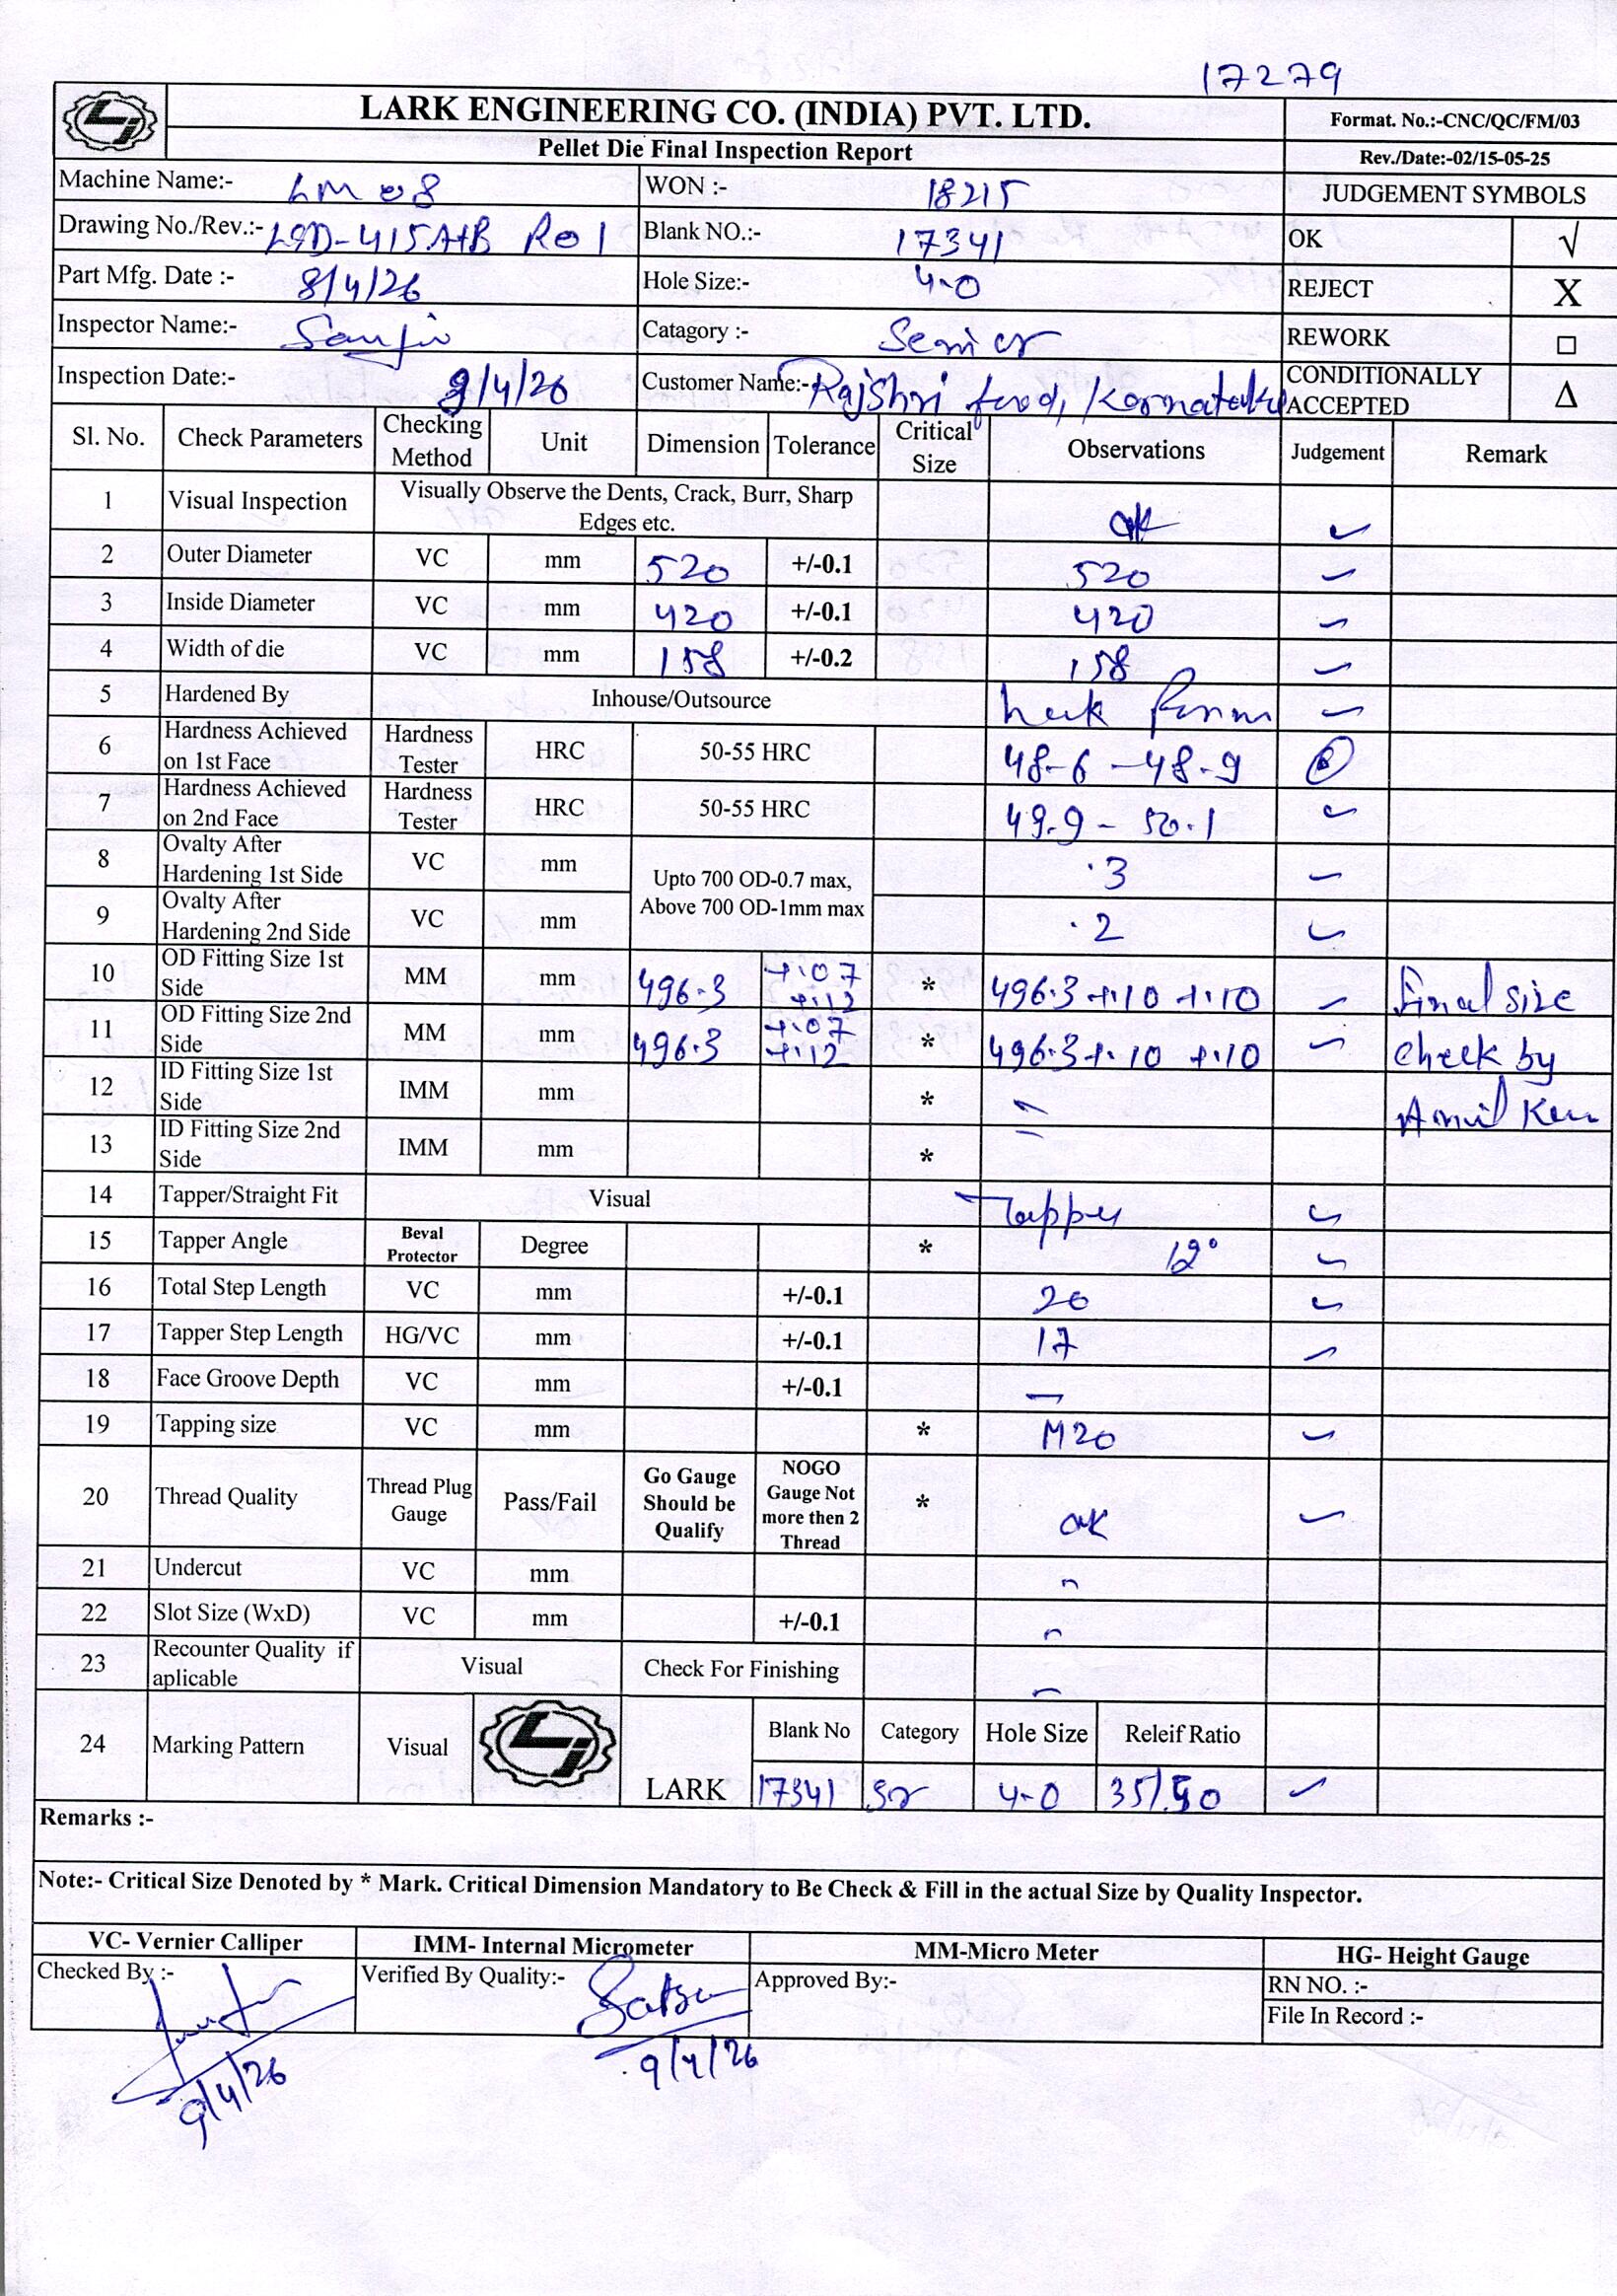 17279
LARK ENGINEERING CO. (INDIA) PVT. LTD.
Format. No.:-CNC/QC/FM/03
Pellet Die Final Inspection Report
Rev./Date:-02/15-05-25
Machine Name:- LM 08 WON :- 18215 JUDGEMENT SYMBOLS
Drawing No./Rev.:- -415A+B R01 Blank NO.:- 17341 OK √
Part Mfg. Date :- 8/4/26 Hole Size:- 4.0 REJECT X
Inspector Name:- Sanjiv Catagory :- Senior REWORK □
Inspection Date:- 9/4/26 Customer Name:- Rajshri food, Karnataka CONDITIONALLY ACCEPTED Δ
Sl. No. Check Parameters Checking Method Unit Dimension Tolerance Critical Size Observations Judgement Remark
1 Visual Inspection Visually Observe the Dents, Crack, Burr, Sharp Edges etc. ok ✓
2 Outer Diameter VC mm 520 +/-0.1 520 ✓
3 Inside Diameter VC mm 420 +/-0.1 420 ✓
4 Width of die VC mm 158 +/-0.2 158 ✓
5 Hardened By Inhouse/Outsource ✓
6 Hardness Achieved on 1st Face Hardness Tester HRC 50-55 HRC 48.6 - 48.9
7 Hardness Achieved on 2nd Face Hardness Tester HRC 50-55 HRC 49.9 - 50.1 ✓
8 Ovalty After Hardening 1st Side VC mm Upto 700 OD-0.7 max, Above 700 OD-1mm max .3 ✓
9 Ovalty After Hardening 2nd Side VC mm .2 ✓
10 OD Fitting Size 1st Side MM mm 496.3 +.07 +.12 * 496.3 +.10 +.10 ✓ Final size
11 OD Fitting Size 2nd Side MM mm 496.3 +.07 +.12 * 496.3 +.10 +.10 ✓ Check by
12 ID Fitting Size 1st Side IMM mm * - Anil
13 ID Fitting Size 2nd Side IMM mm * -
14 Tapper/Straight Fit Visual Tapper ✓
15 Tapper Angle Beval Protector Degree * 12° ✓
16 Total Step Length VC mm +/-0.1 20 ✓
17 Tapper Step Length HG/VC mm +/-0.1 17 ✓
18 Face Groove Depth VC mm +/-0.1 -
19 Tapping size VC mm * M20 ✓
20 Thread Quality Thread Plug Gauge Pass/Fail Go Gauge Should be Qualify NOGO Gauge Not more then 2 Thread * ok ✓
21 Undercut VC mm -
22 Slot Size (WxD) VC mm +/-0.1 -
23 Recounter Quality if aplicable Visual Check For Finishing -
24 Marking Pattern Visual LARK Blank No Category Hole Size Releif Ratio
17341 Sr 4.0 35/50 ✓
Remarks :-
Note:- Critical Size Denoted by * Mark. Critical Dimension Mandatory to Be Check & Fill in the actual Size by Quality Inspector.
VC- Vernier Calliper IMM- Internal Micrometer MM-Micro Meter HG- Height Gauge
Checked By :- Verified By Quality:- Approved By:- RN NO. :-
File In Record :-
9/4/26 9/4/26